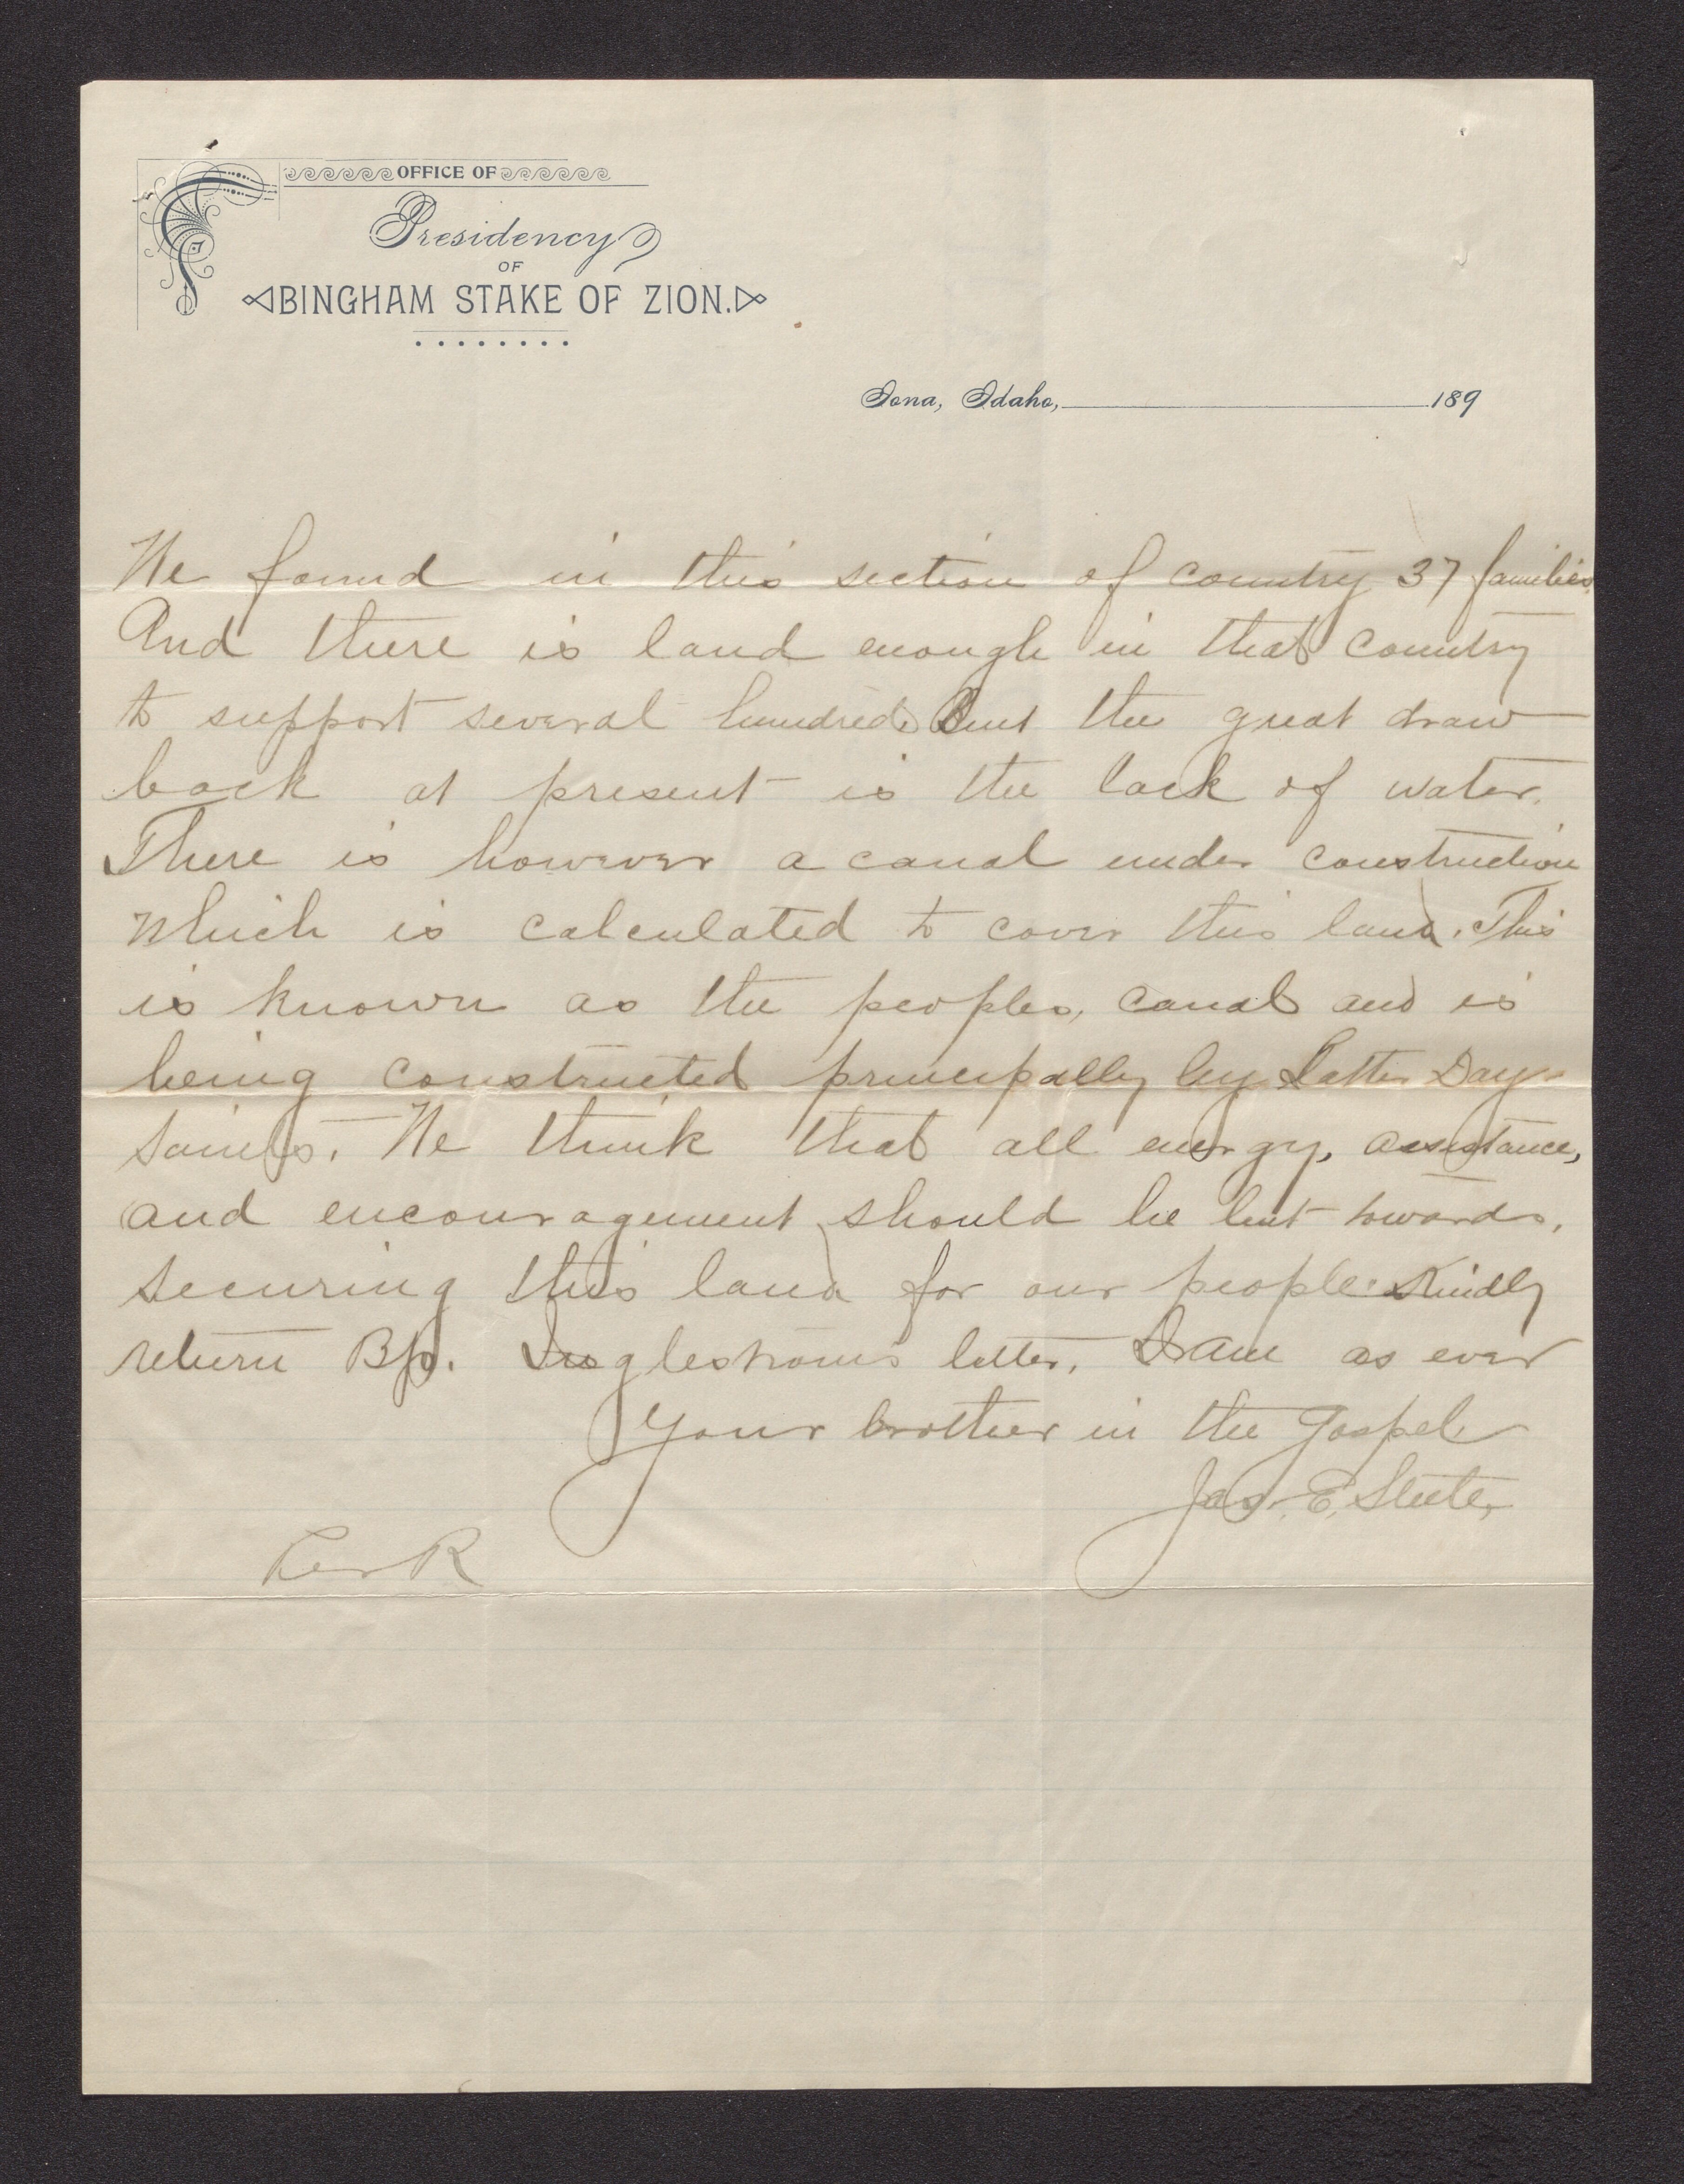 OFFICE OF
Presidency
OF
BINGHAM STAKE OF ZION.
Iona, Idaho, 189
We found in this section of country 37 families.
And there is land enough in that country
to support several hundred. But the great draw
back at present is the lack of water.
There is however a canal under construction
which is calculated to cover this land. This
is known as the peoples, canal and is
being constructed principally by Latter Day
Saints. We think that all energy, assistance,
and encouragement should be bent towards,
securing this land for our people. Kindly
return Bp. letter. I am as ever
Your brother in the Gospel
Jas. E. Steele,